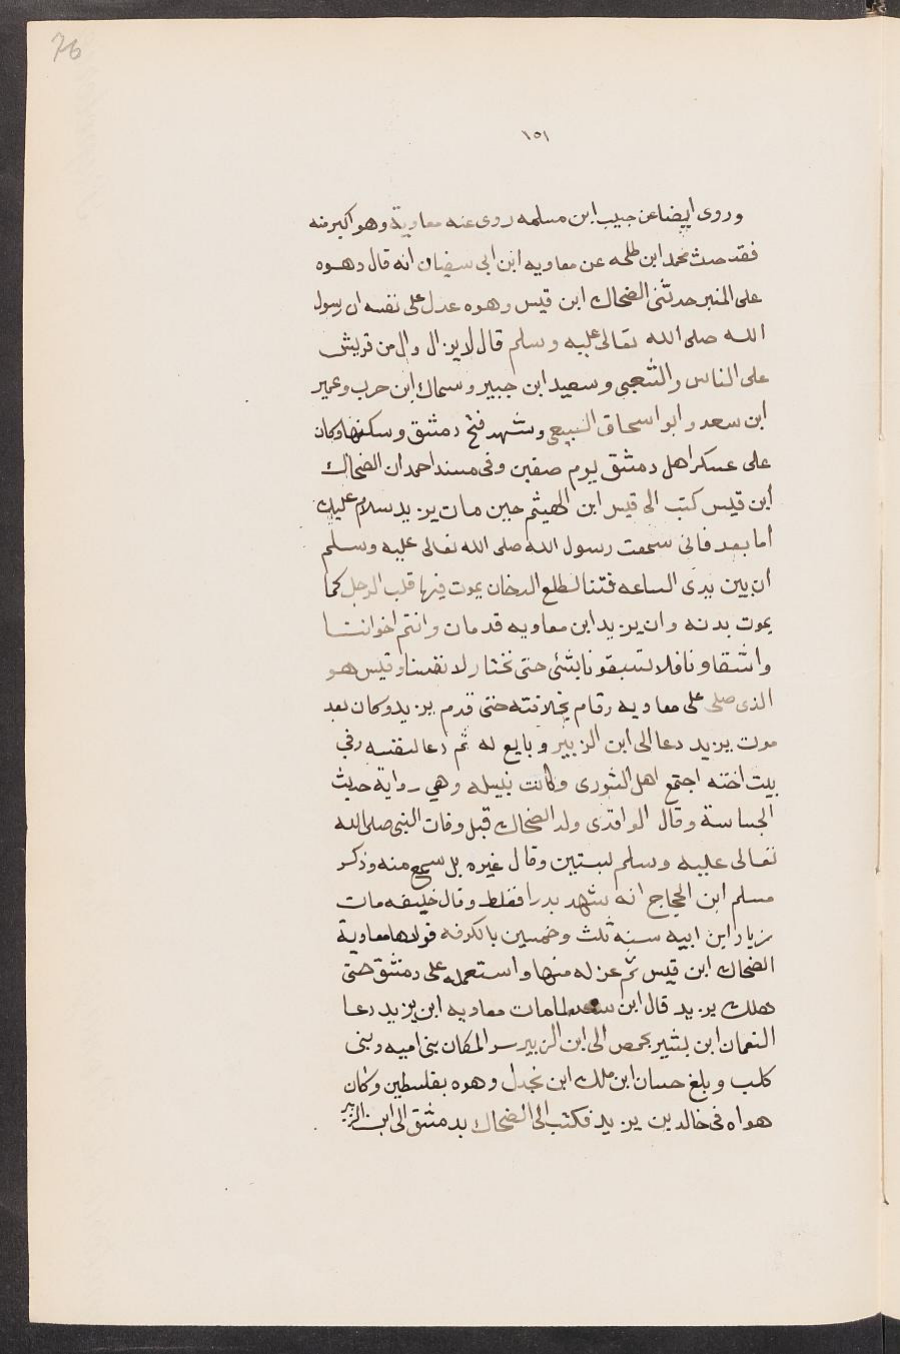 76
١٥١
وروى ايضا عن حبيب ابن مسلمه روى عنه معاوية وهو اكبر منه
فقد حدث محمد ابن طلحه عن معاويه ابن ابى سفيان انه قال وهوه
على المنبر حدثنى الضحاك ابن قيس وهوه عدل على نفسه ان رسول
الله صلى الله تعالى عليه وسلم قال لا يزال وال من قريش
على الناس والشعبى وسعيد ابن جبير وسماك ابن حرب وعمير
ابن سعد وابو اسحاق السبيعى وشهد فتح دمشق وسكنها وكان
على عسكر اهل دمشق يوم صفين وفى مسند احمد ان الضحاك
ابن قيس كتب الى قيس ابن الهيثم حين مات يزيد سلام عليك
اما بعد فانى سمعت رسول الله صلى الله تعالى عليه وسلم
ان بين يدى الساعه فتنا الدخان يموت فيها قلب الرجل كما
يموت بدنه وان يزيد ابن معاويه قد مات وانتم اخواننا
واشقاونا فلا تسبقونا بشئى حتى نختار لانفسنا وقيس هو
الذى صلى على معاويه وقام بخلافته حتى قدم يزيد وكان بعد
موت يزيد دعا الى ابن الزبير وبايع له ثم دعا لنفسه وفى
بيت اخته اجتمع اهل الشورى وكانت نبيله وهي رواية حديث
الجساسة وقال الواقدى ولد الضحاك قبل وفات النبى صلى الله
تعالى عليه وسلم بستين وقال غيره بل سمع منه وذكر
مسلم ابن الحجاج انه شهد بدرا فغلط وقال خليفه مات
زياد ابن ابيه سنه ثلث وخمسين بالكوفه فولاها معاوية
الضحاك ابن قيس ثم عزله منها واستعمله على دمشق حتى
هلك يزيد قال ابن سعد لما مات معاويه ابن يزيد دعا
النعمان ابن بشير بحمص الى ابن الزبير سرا لمكان بنى اميه وبنى
كلب وبلغ حسان ابن ملك ابن بجدل وهوه بفلسطين وكان
هواه فى خالد بن يزيد فكتب الى الضحاك بدمشق الى ابن الزبير